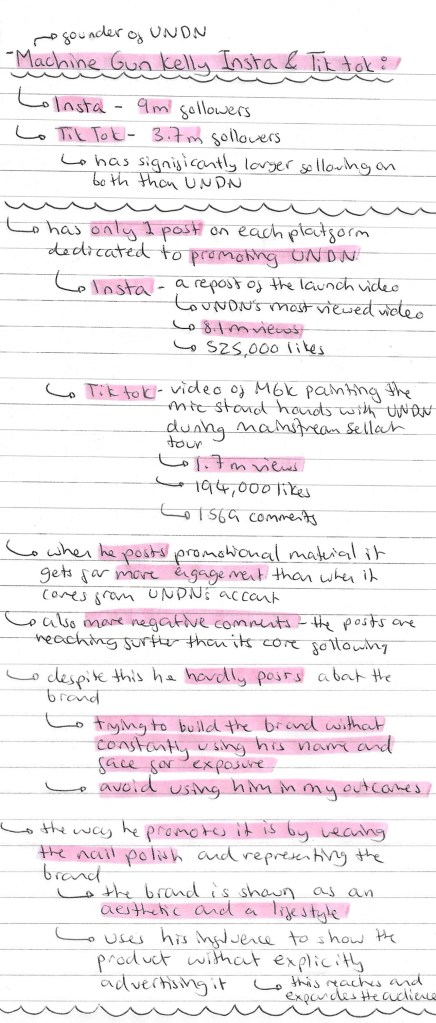 founder of UNDN
- Machine Gun Kelly Insta & Tik tok:
Insta - 9m followers
Tik Tok - 3.7m followers
has significantly larger following on
both than UNDN
has only 1 post on each platform
dedicated to promoting UNDN
Insta - a repost of the launch video
UNDN's most viewed video
8.1m views
525,000 likes
Tik tok - video of MGK painting the
mic stand hands with UNDN
during mainstream sellout
tour
1.7m views
194,000 likes
1569 comments
when he posts promotional material it
gets far more engagement than when it
comes from UNDN's account
also more negative comments - the posts are
reaching further than its core following
despite this he hardly posts about the
brand
trying to build the brand without
constantly using his name and
face for exposure
avoid using him in my outcomes
the way he promotes it is by wearing
the nail polish and representing the
brand
the brand is shown as an
aesthetic and a lifestyle
uses his influence to show the
product without explicitly
advertising it
this reaches and
expandes the audience